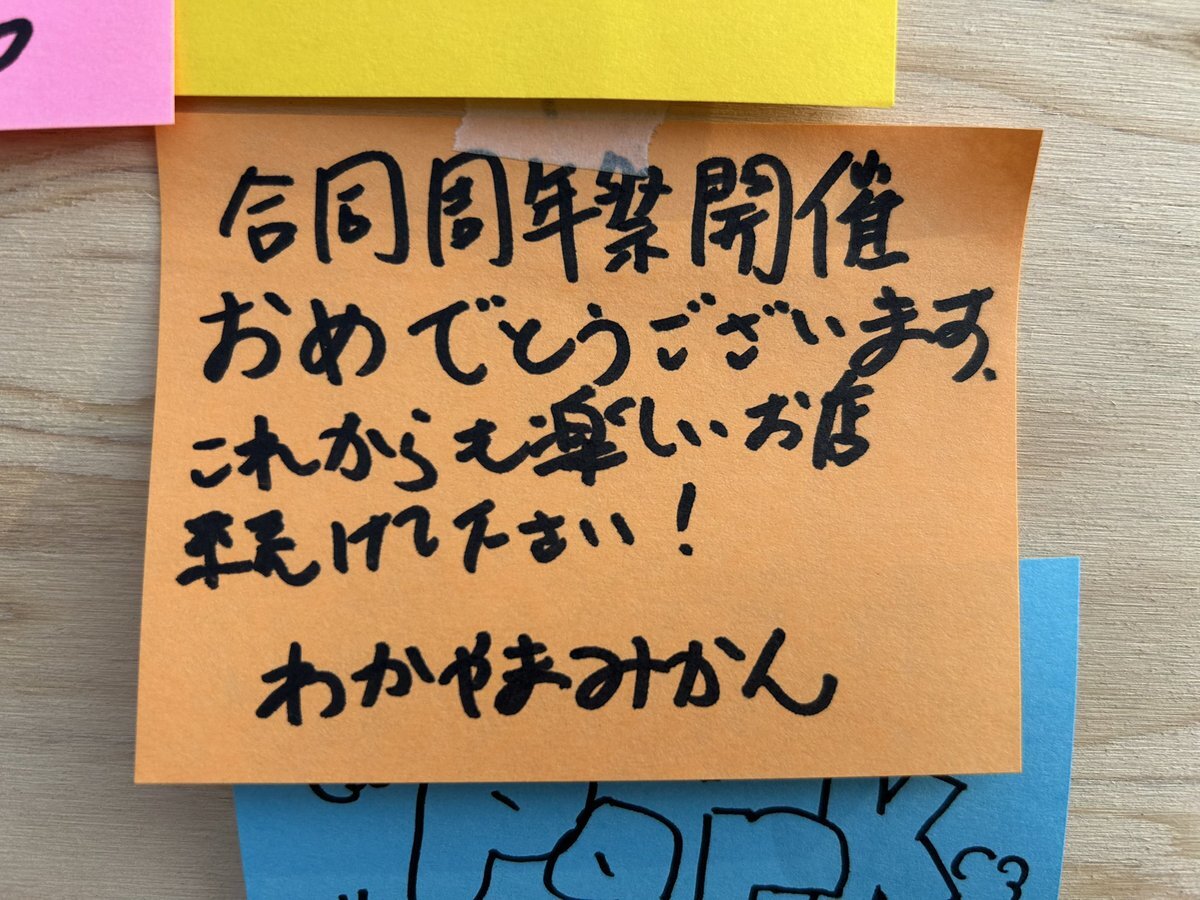 合同周年祭開催
おめでとうございます.
これからも楽しいお店
続けて下さい!
わかやまみかん